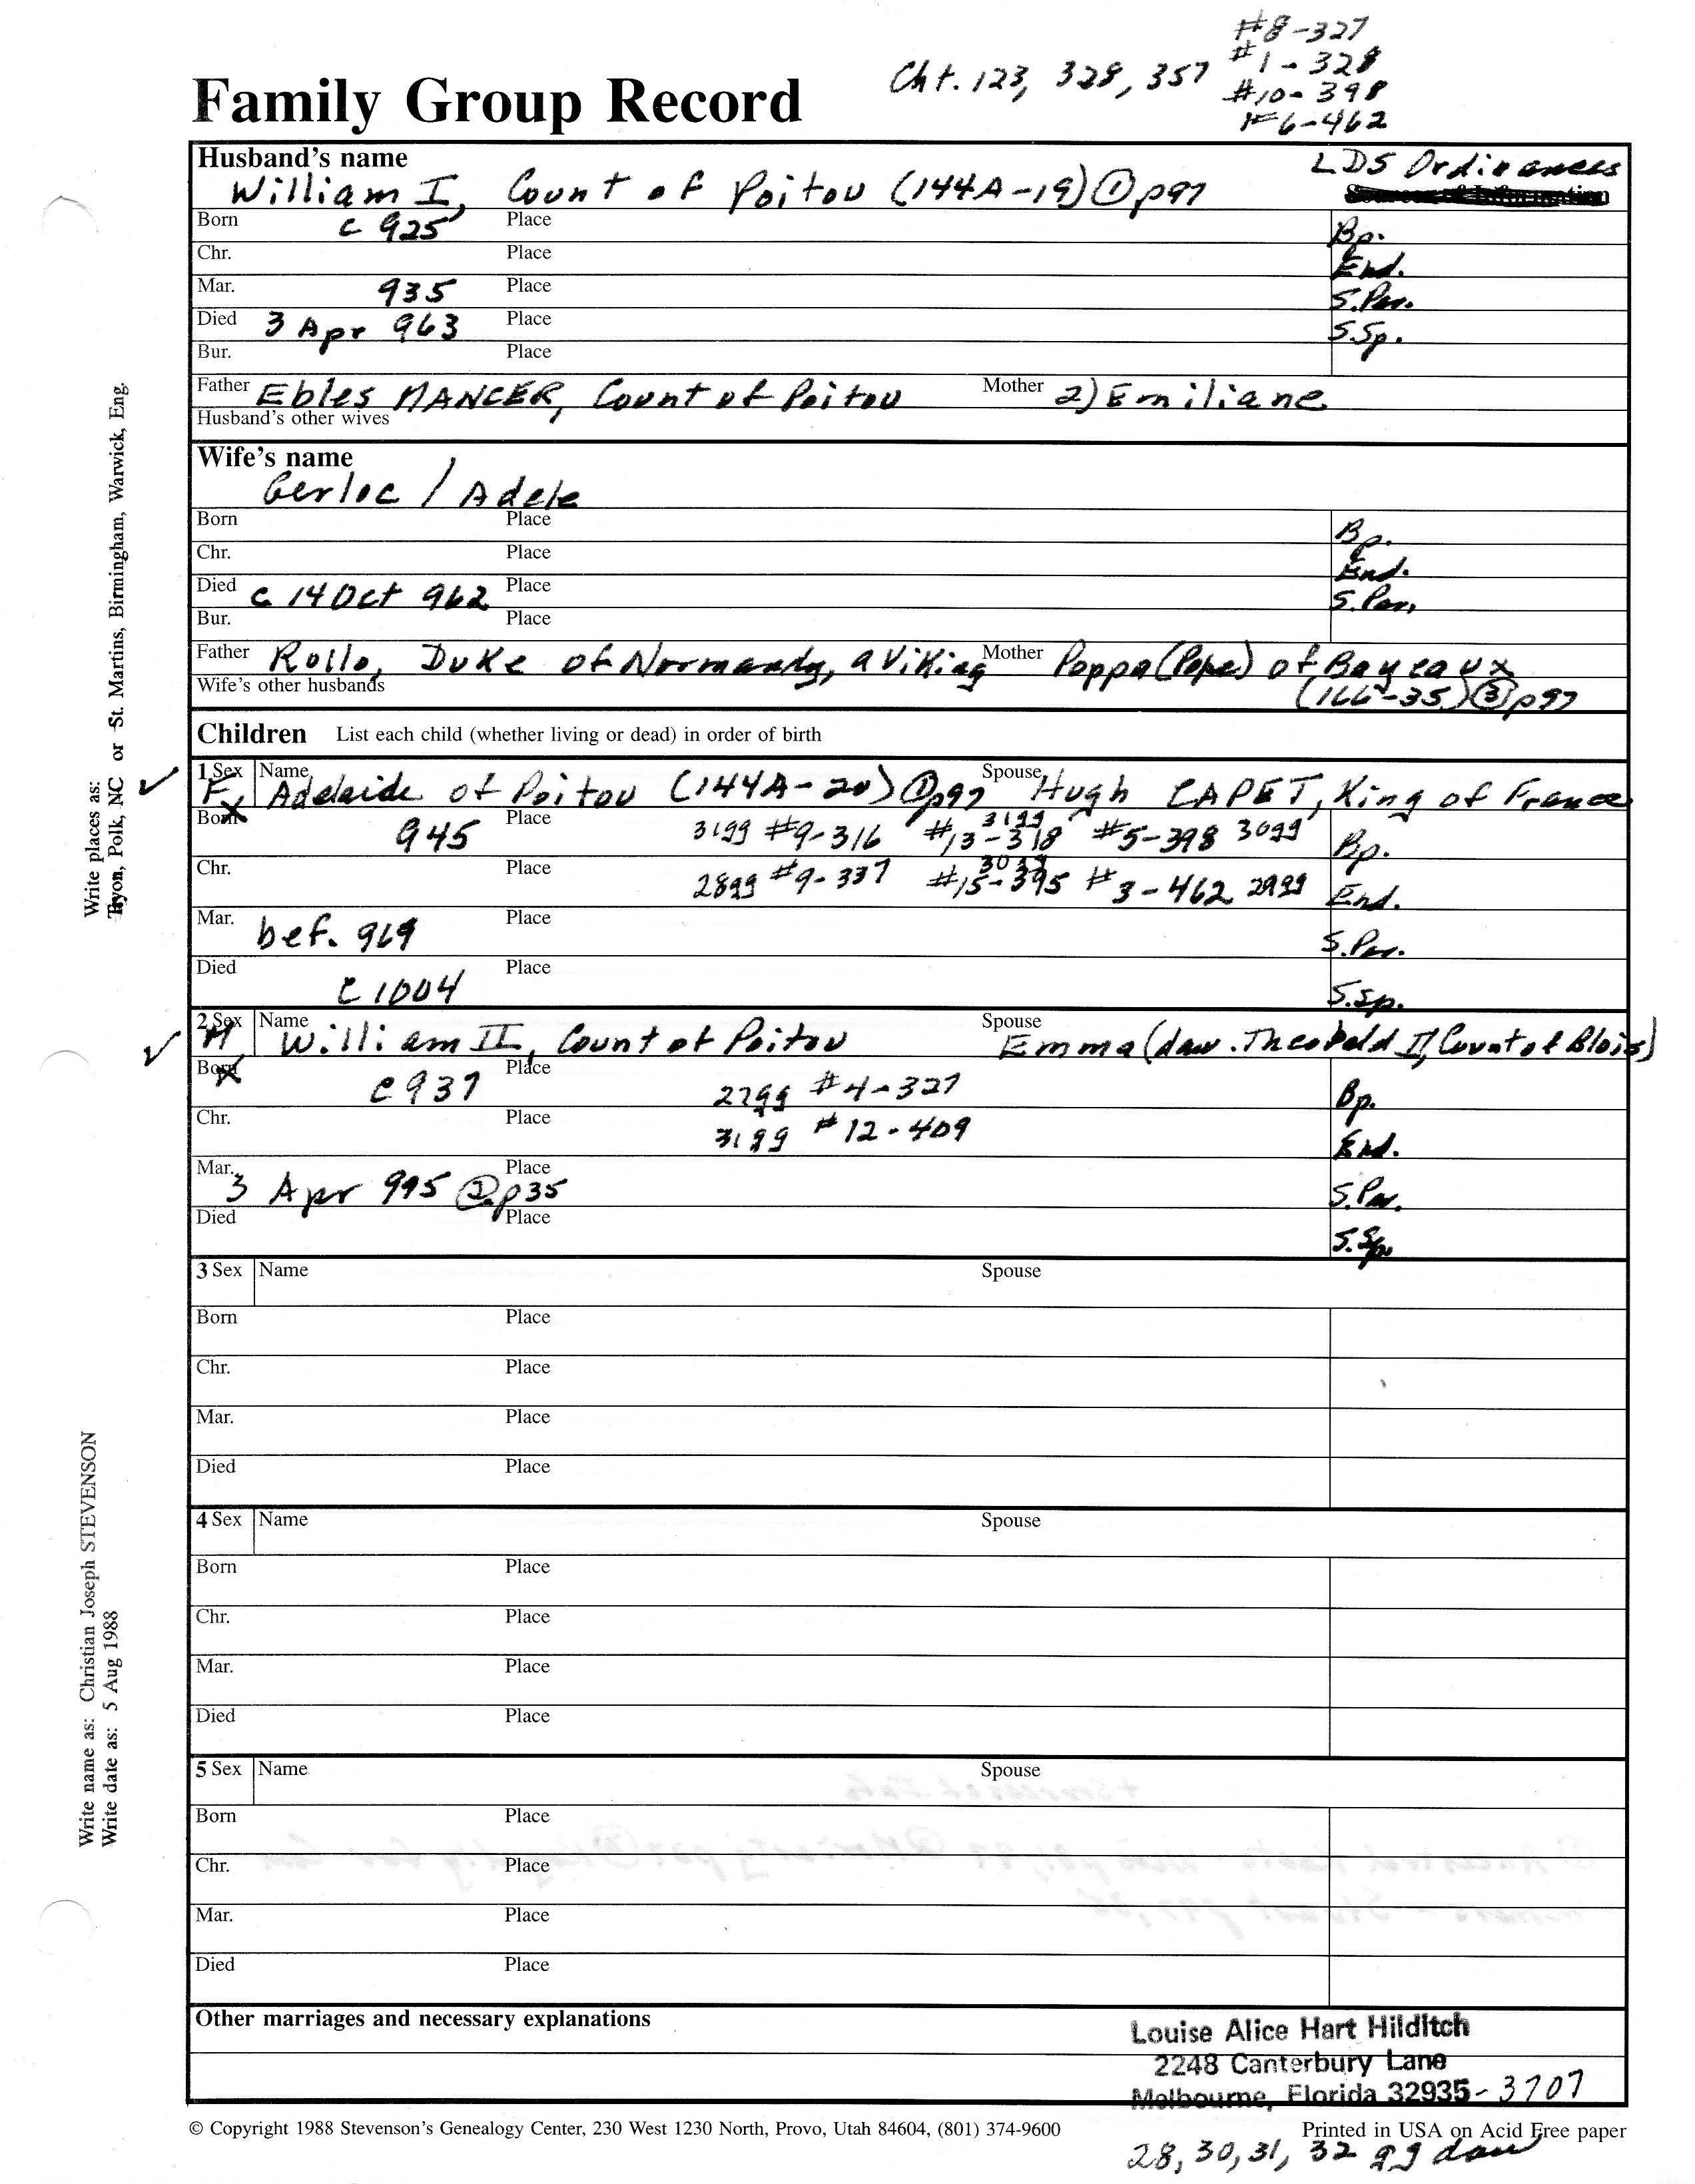 #8-327
Cht. 123, 328, 357 #1-328
#10-398
#6-462
Family Group Record
Husband's name LDS Ordinances
William I, Count of Poitou (144A-19) ① p97
Born c 925 Place Bp.
Chr. Place End.
Mar. 935 Place S.Par.
Died 3 Apr 963 Place S.Sp.
Bur. Place
Father Ebles MANCER, Count of Poitou Mother 2) Emiliane
Husband's other wives
Wife's name
Gerloc / Adele
Born Place Bp.
Chr. Place End.
Died c 14 Oct 962 Place S.Par.
Bur. Place
Father Rollo, Duke of Normandy, a Viking Mother Poppa (Pope) of Bayeaux
Wife's other husbands (166-35) ③ p97
Children List each child (whether living or dead) in order of birth
1 Sex F Name Adelaide of Poitou (144A-20) ① p97 Spouse Hugh CAPET, King of France
Born 945 Place 31gg #9-316 #13-318 31gg #5-398 30gg Bp.
Chr. Place 28gg #9-337 #15-395 30gg #3-462 29gg End.
Mar. bef. 969 Place S.Par.
Died c 1004 Place S.Sp.
2 Sex M Name William II, Count of Poitou Spouse Emma (dau. Theobald II, Count of Blois)
Born c 937 Place 27gg #4-327 Bp.
Chr. Place 31gg #12-409 End.
Mar. Place
3 Apr 995 ② p35 S.Par.
Died Place S.Sp.
3 Sex Name Spouse
Born Place
Chr. Place
Mar. Place
Died Place
4 Sex Name Spouse
Born Place
Chr. Place
Mar. Place
Died Place
5 Sex Name Spouse
Born Place
Chr. Place
Mar. Place
Died Place
Other marriages and necessary explanations
Louise Alice Hart Hilditch
2248 Canterbury Lane
Melbourne, Florida 32935-3707
© Copyright 1988 Stevenson's Genealogy Center, 230 West 1230 North, Provo, Utah 84604, (801) 374-9600 Printed in USA on Acid Free paper
28, 30, 31, 32 gg dau
Write places as:
Tryon, Polk, NC or St. Martins, Birmingham, Warwick, Eng.
Write name as: Christian Joseph STEVENSON
Write date as: 5 Aug 1988